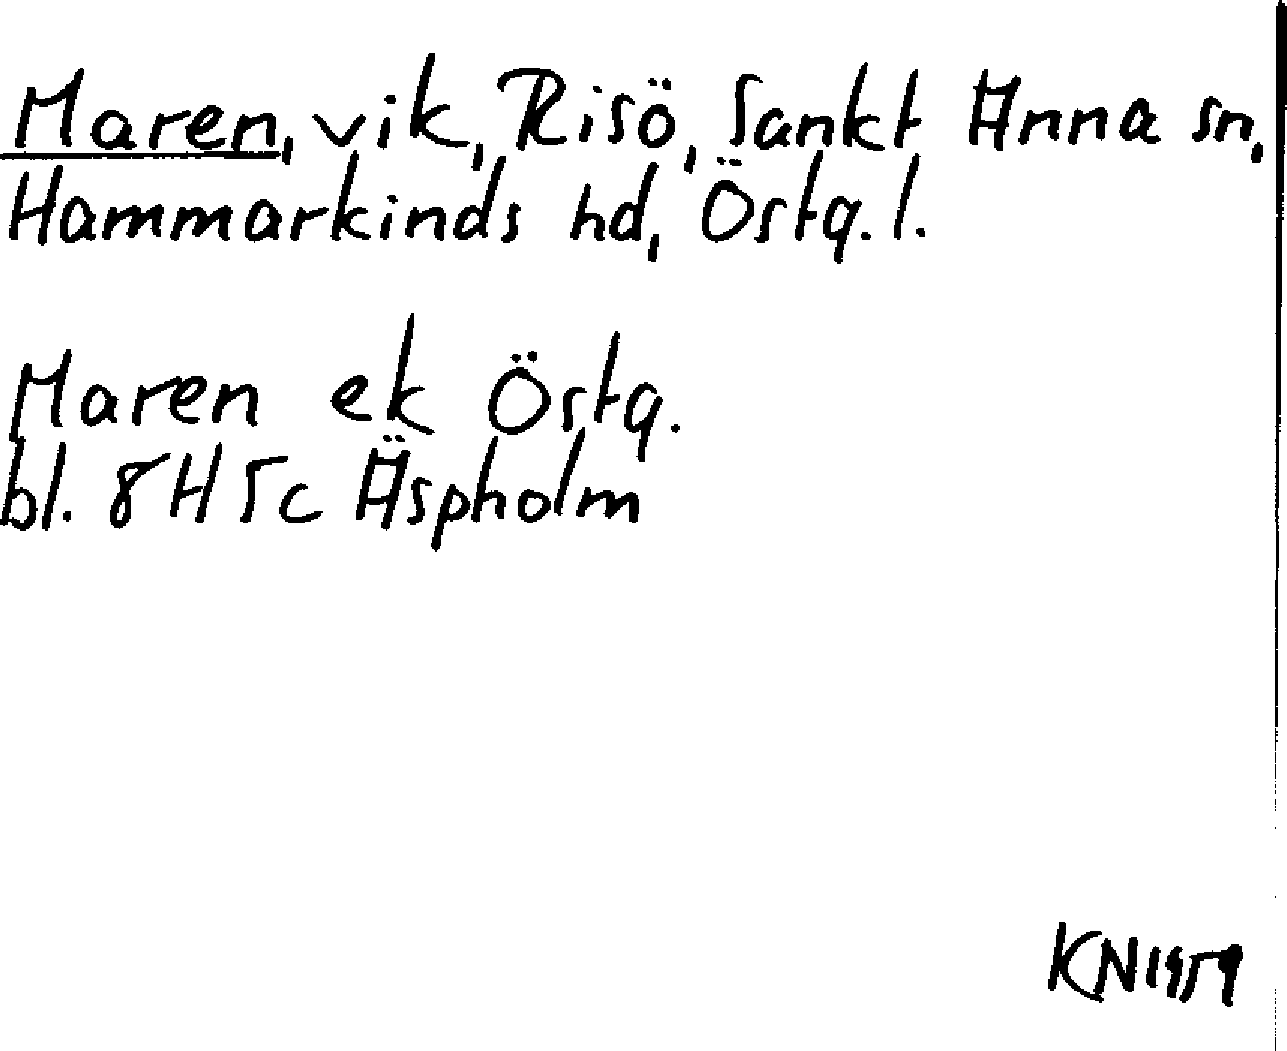 Maren, vik, Risö, Sankt Anna sn,
Hammarkinds hd, Östg. l.
Maren ek Östg.
bl. 8H5c Äspholm
KN1959